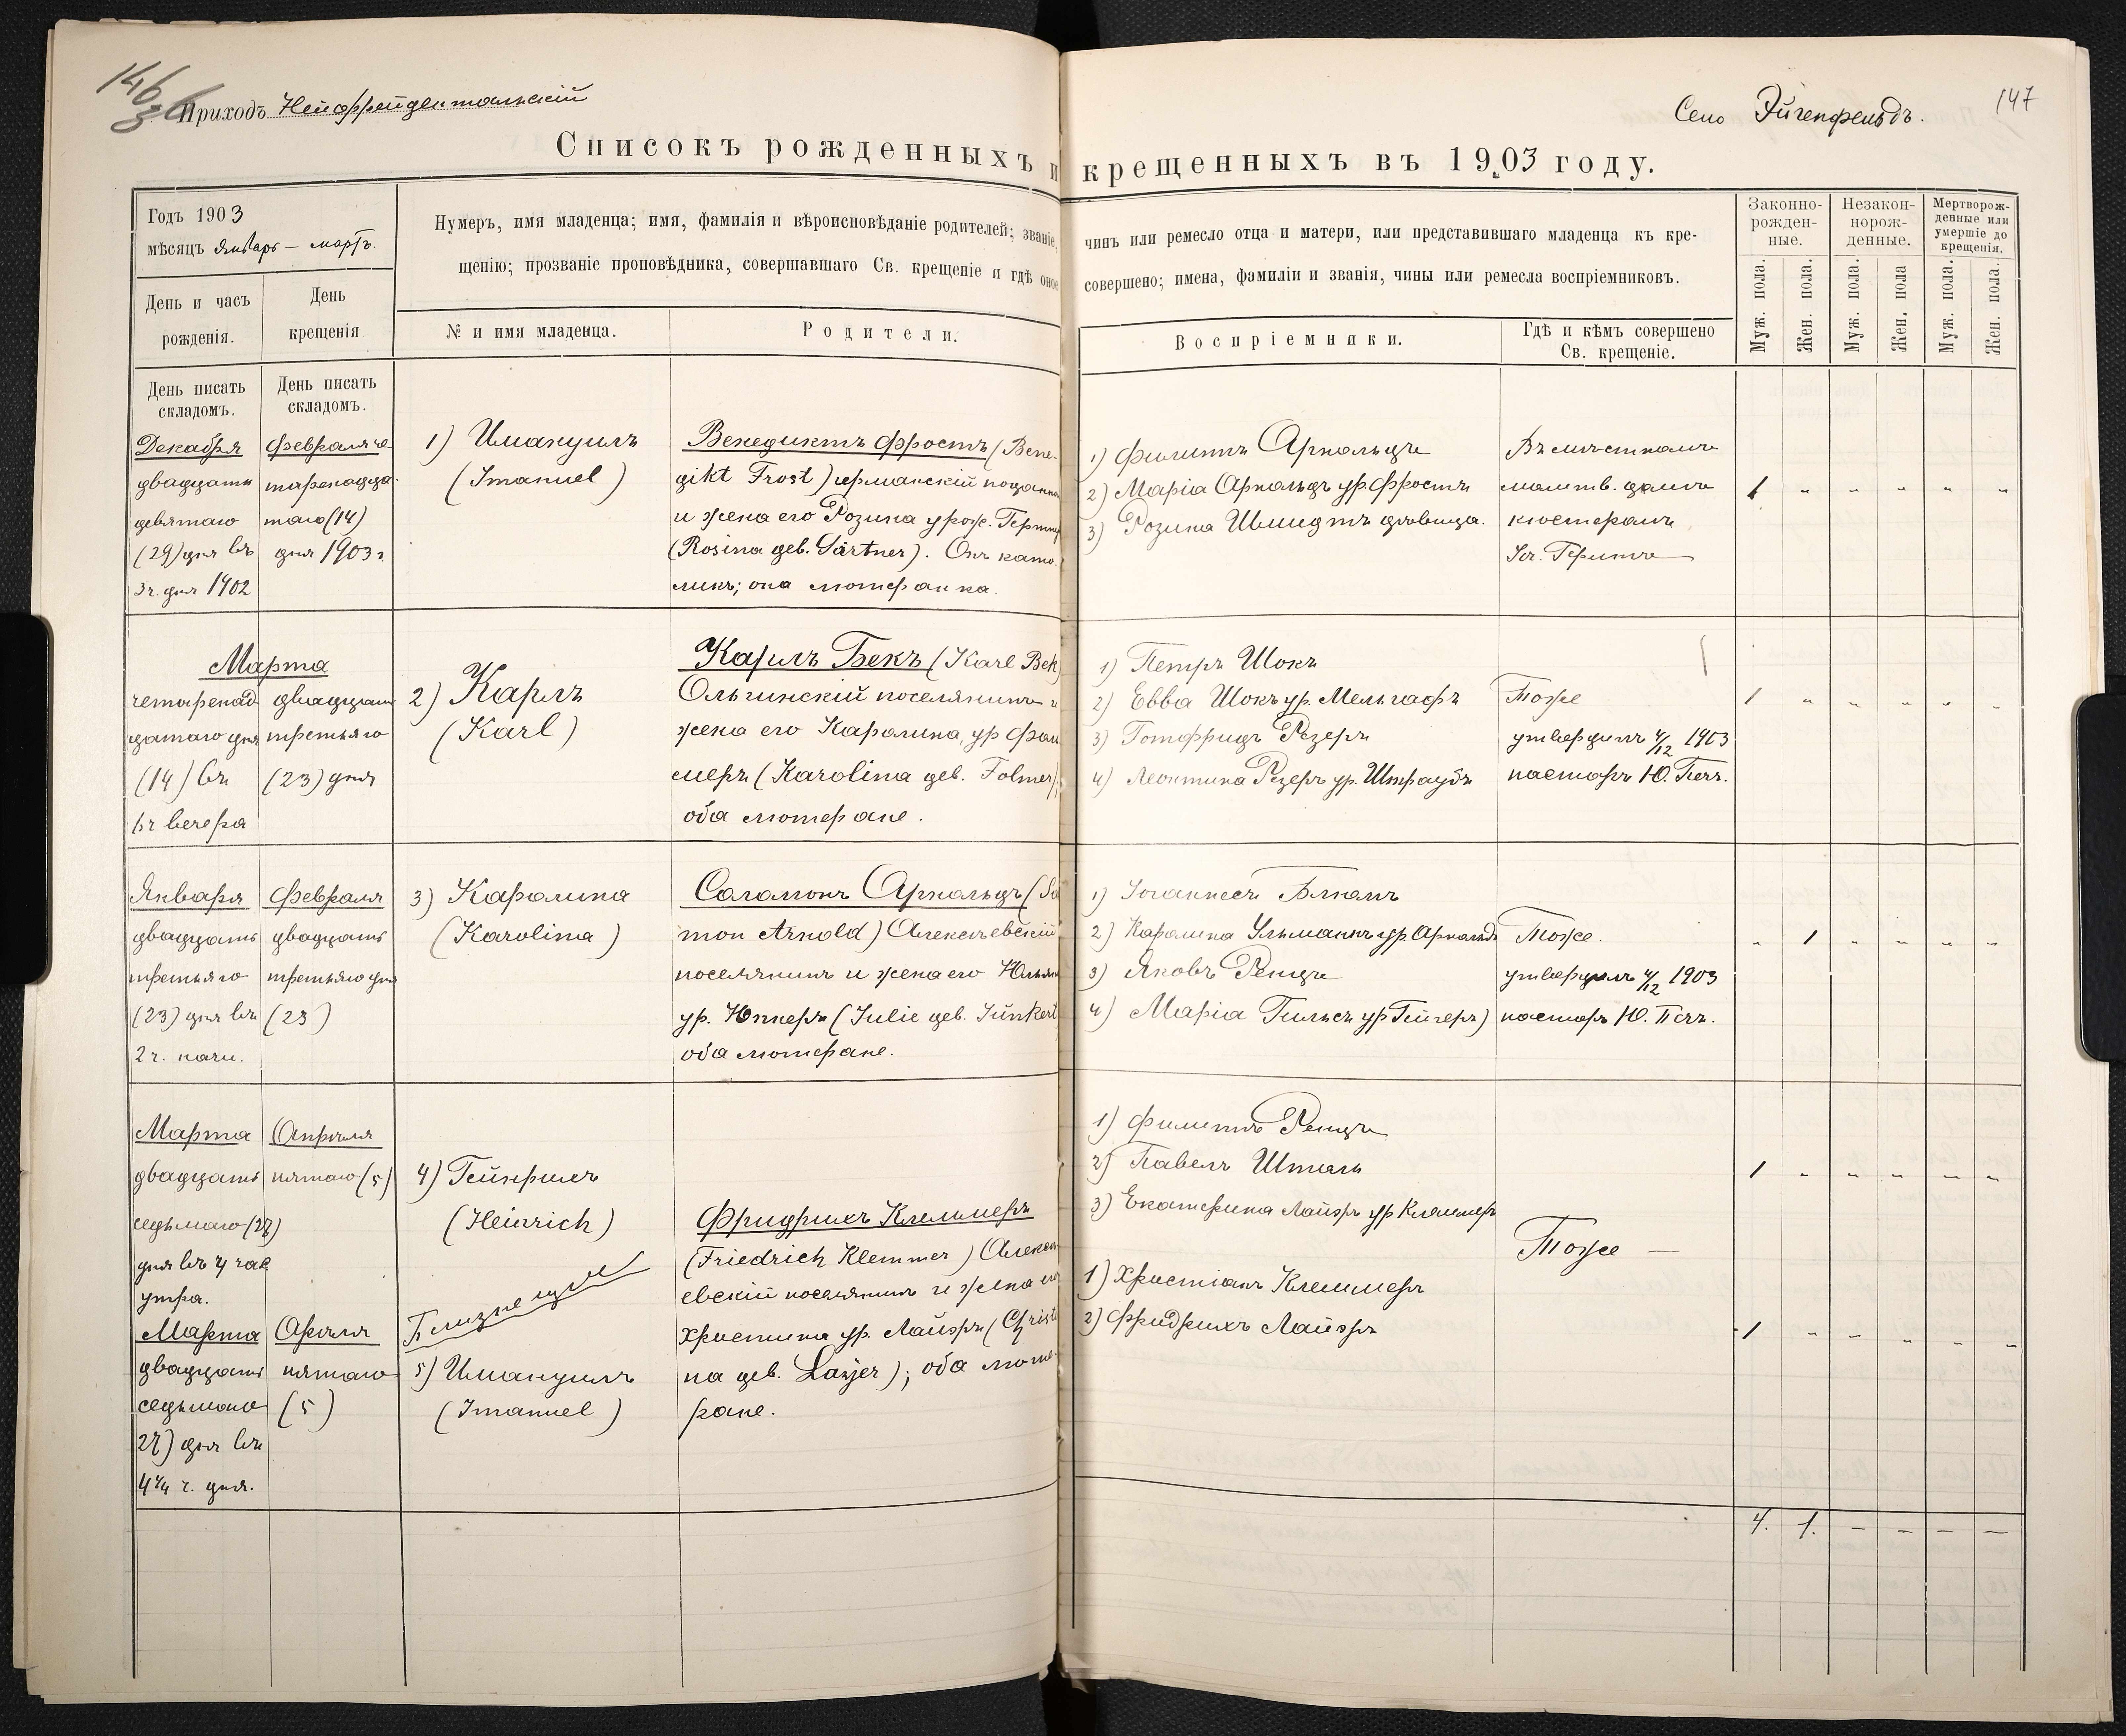 146
Приходъ Нейфрейдентальскій
Село Эйгенфельдъ.
147
Списокъ рожденныхъ и крещенныхъ въ 1903 году.
Годъ 1903
мѣсяцъ Январь — мартъ.
День и часъ
рожденія.
День
крещенія
Нумеръ, имя младенца; имя, фамилія и вѣроисповѣданіе родителей; званіе,
щенію; прозваніе проповѣдника, совершавшаго Св. крещеніе и гдѣ оное
№ и имя младенца.
Родители.
чинъ или ремесло отца и матери, или представившаго младенца къ кре-
совершено; имена, фамиліи и званія, чины или ремесла воспріемниковъ.
Воспріемники.
Гдѣ и кѣмъ совершено
Св. крещеніе.
Законно-
рожден-
ные.
Незакон-
норож-
денные.
Мертворож-
денные или
умершіе до
крещенія.
Муж. пола.
Жен. пола.
Муж. пола.
Жен. пола
Муж. пола.
Жен. пола.
День писать
складомъ.
День писать
складомъ.
Декабря
двадцати
девятаго
(29) дня въ
3 ч. дня 1902
Февраля че-
тыренадца-
таго (14)
дня 1903 г.
1) Имануилъ
(Imanuel)
Бенедиктъ Фростъ (Bene-
dikt Frost) германскій поддан
и жена его Розина урож. Гертн
(Rosina geb. Gärtner). Онъ като-
ликъ; она лютеранка.
1) Филиппъ Арнольдъ
2) Марія Арнольдъ ур. Фростъ
3) Розина Шмидтъ дѣвица.
Въ мѣстномъ
молитв. домѣ
кюстеромъ
1 " " " " "
Марта
четыренад
цатаго дня
(14) въ
6 ч вечера
двадцать
третьяго
(23) дня
2) Карлъ
(Karl)
Карлъ Бекъ (Karl Bek)
Ольгинскій поселянинъ и
жена его Каролина, ур Фол
меръ (Karolina geb. Folmer);
оба лютеране.
1) Петръ Шокъ
2) Евва Шокъ ур. Мельгафъ
3) Готфридъ Резеръ
4) Леонтина Резеръ ур. Штраубъ
Тоже
утвердилъ 4/12 1903
пасторъ Ю. Печъ.
1 " " " " "
Января
двадцать
третьяго
(23) дня въ
2 ч. ночи.
Февраля
двадцать
третьяго дня
(23)
3) Каролина
(Karolina)
Саломонъ Арнольдъ (Sa
mon Arnold) Алексѣевскій
поселянинъ и жена его Юлія
ур. Юнкертъ (Julie geb. Junkert
оба лютеране.
1) Іоганнесъ Бломъ
2) Каролина Ульманнъ ур. Арнольдъ
3) Яковъ Ренцъ
4) Марія Гильсъ ур Гейгеръ)
Тоже.
утвердилъ 4/12 1903
пасторъ Ю. Печъ.
" 1 " " " "
Марта
двадцать
седьмаго (27)
дня въ 4 час
утра.
Апрѣля
пятаго (5)
4) Гейнрихъ
(Heinrich)
Близнецы
Фридрихъ Клеммеръ
(Friedrich Klemmer) Алексѣ
евскій поселянинъ и жена его
Христина ур. Лайеръ (Christi
na geb. Layer); оба люте-
ране.
1) Филиппъ Ренцъ
2) Павелъ Шталь
3) Екатерина Лайэръ ур Клеммеръ
Тоже —
1 " " " " "
Марта
двадцать
седьмаго
27) дня въ
4 1/4 ч. дня.
Апрѣля
пятаго
(5)
5) Имануилъ
(Imanuel)
1) Христіанъ Клеммеръ
2) Фридрихъ Лайэръ
1 " " " " "
4. 1. — — — —